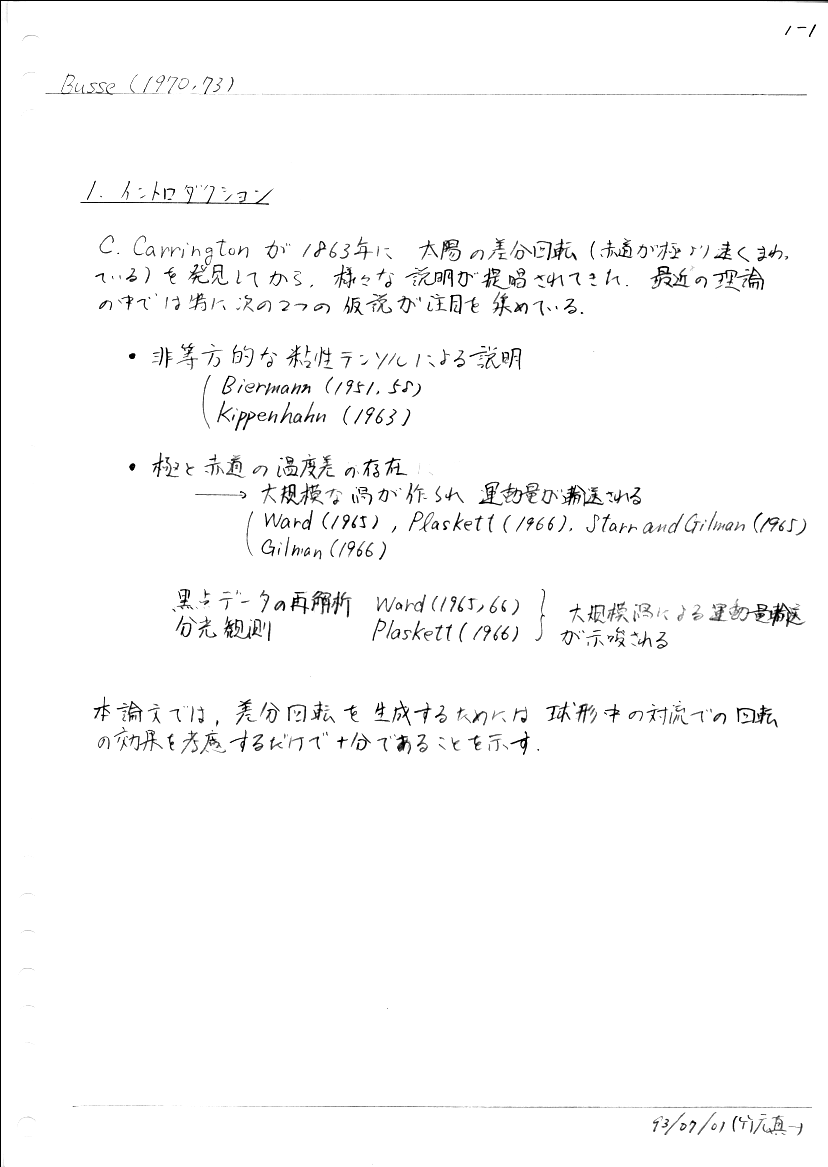 1-1
Busse (1970, 73)
1. イントロダクション
C. Carrington が 1863年に 太陽の差分回転 (赤道が極より速くまわっ
ている) を発見してから, 様々な説明が提唱されてきた. 最近の理論
の中では特に次の2つの仮説が注目を集めている.
• 非等方的な粘性テンソルによる説明
( Biermann (1951, 58)
Kippenhahn (1963)
• 極と赤道の温度差の存在
→ 大規模な渦が作られ 運動量が輸送される
( Ward (1965), Plaskett (1966), Starr and Gilman (1965)
Gilman (1966)
黒点データの再解析 Ward (1965, 66) } 大規模渦による運動量輸送
分光観測 Plaskett (1966) が示唆される
本論文では, 差分回転を生成するためには 球形中の対流での回転
の効果を考慮するだけで十分であることを示す.
93/07/01 (竹広真一)